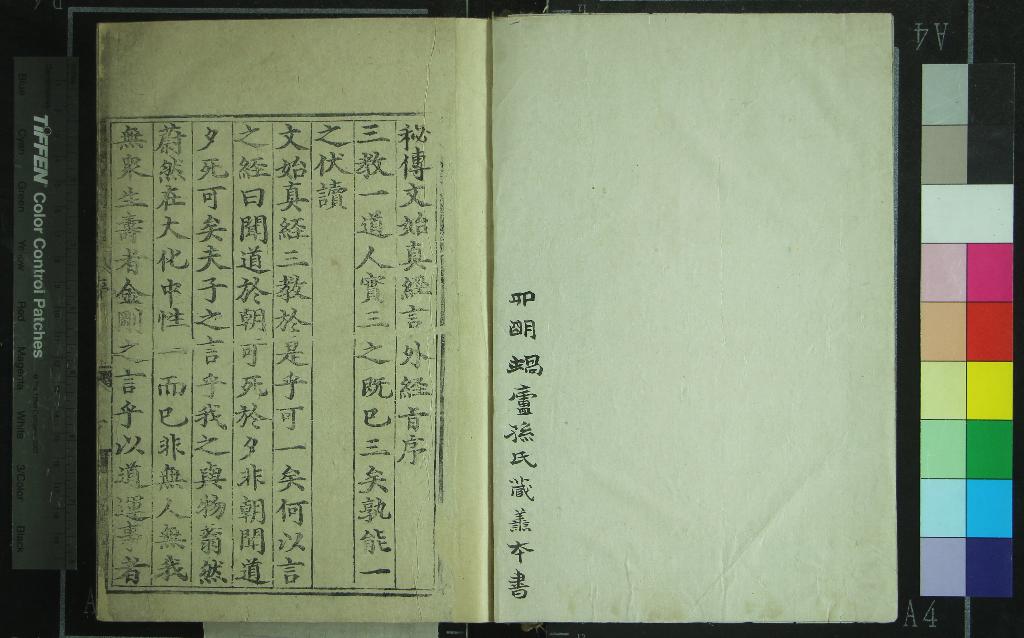 四明蝸廬孫氏藏善本書
秘傳文始真經言外經旨序
三教一道人實三之既巳三矣孰能一
之伏讀
文始真經三教於是乎可一矣何以言
之經曰聞道於朝可死於夕非朝聞道
夕死可矣夫子之言乎我之與物蓊然
蔚然在大化中性一而巳非無人無我
無衆生壽者金剛之言乎以道運事者
TIFFEN Color Control Patches
Blue
Cyan
Green
Yellow
Red
Magenta
White
3/Color
Black
A4
A4